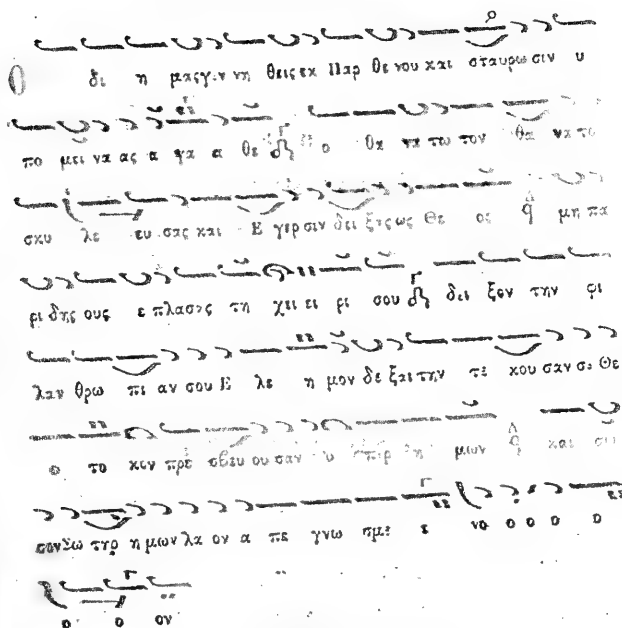 Ο δι η μας γεν νη θεις εκ Παρ θε νου και σταυρω σιν υ
πο μει να ας α γα α θε ο θα να τω τον θα να το
σκυ λε ευ σας και Ε γερ σιν δει ξας ως Θε ος μη πα
ρι δης ους ε πλασας τη χει ει ρι σου δει ξον την φι
λαν θρω πι αν σου Ε λε η μον δε ξαι την τε κου σαν σε Θε
ο το κον πρε σβευ ου σαν υ περ η μων και σω
σον Σω τηρ η μων λα ον α πε γνω σμε ε νο ο ο ο ο
ο ο ον